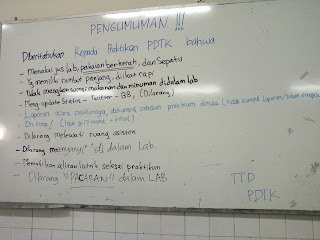 PENGUMUMAN !!!
Diberitahukan Kepada Praktikan PDTK bahwa
- Memakai jas lab, pakaian berkerah, dan Sepatu
- Yg memiliki rambut panjang, diikat rapi
- Tidak mengkonsumsi makanan dan minuman di dalam lab
- Meng-update Status - Twitter - BB, (Dilarang)
- Laporan acara sebelumnya, dikumpul sebelum praktikum dimulai (tidak kumpul laporan/
- On time! (telat ≥15 menit = inhal)
- Dilarang melewati ruang asisten
- Dilarang menyanyi² di dalam Lab.
- Mematikan aliran listrik selesai praktikum
- Dilarang "PACARAN!!" dalam LAB
TTD
PDTK